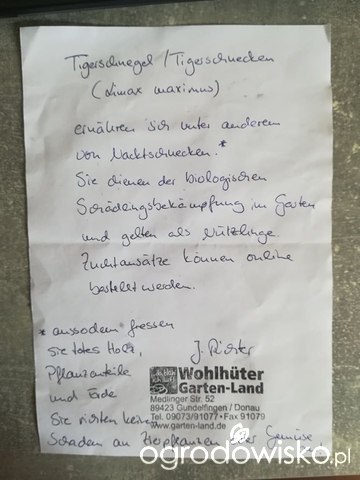 Tigerschnegel / Tigerschnecken
(Limax maximus)
ernähren sich unter anderem
von Nacktschnecken.*
Sie dienen der biologischen
Schädlingsbekämpfung im Garten
und gelten als Nützlinge.
Zuchtansätze können online
bestellt werden.
* aussodem fressen
sie totes Holz,
Pflanzenteile
und Erde
Sie richten keinen
Schaden an Zierpflanzen oder Gemüse
J. Richter
Wohlhüter
Garten-Land
Medlinger Str. 52
89423 Gundelfingen / Donau
Tel. 09073/91077 • Fax 91079
www.garten-land.de
ogrodowisko.pl